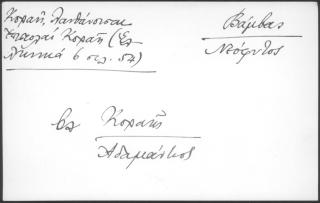 Κοραῆ, Λανθάνουσαι
Ἐπιστολαί Κοραῆ (Ἑλ-
ληνικά 6 σελ. 54)
Βάμβας
Νεόφυτος
βλ Κοραῆς
Ἀδαμάντιος